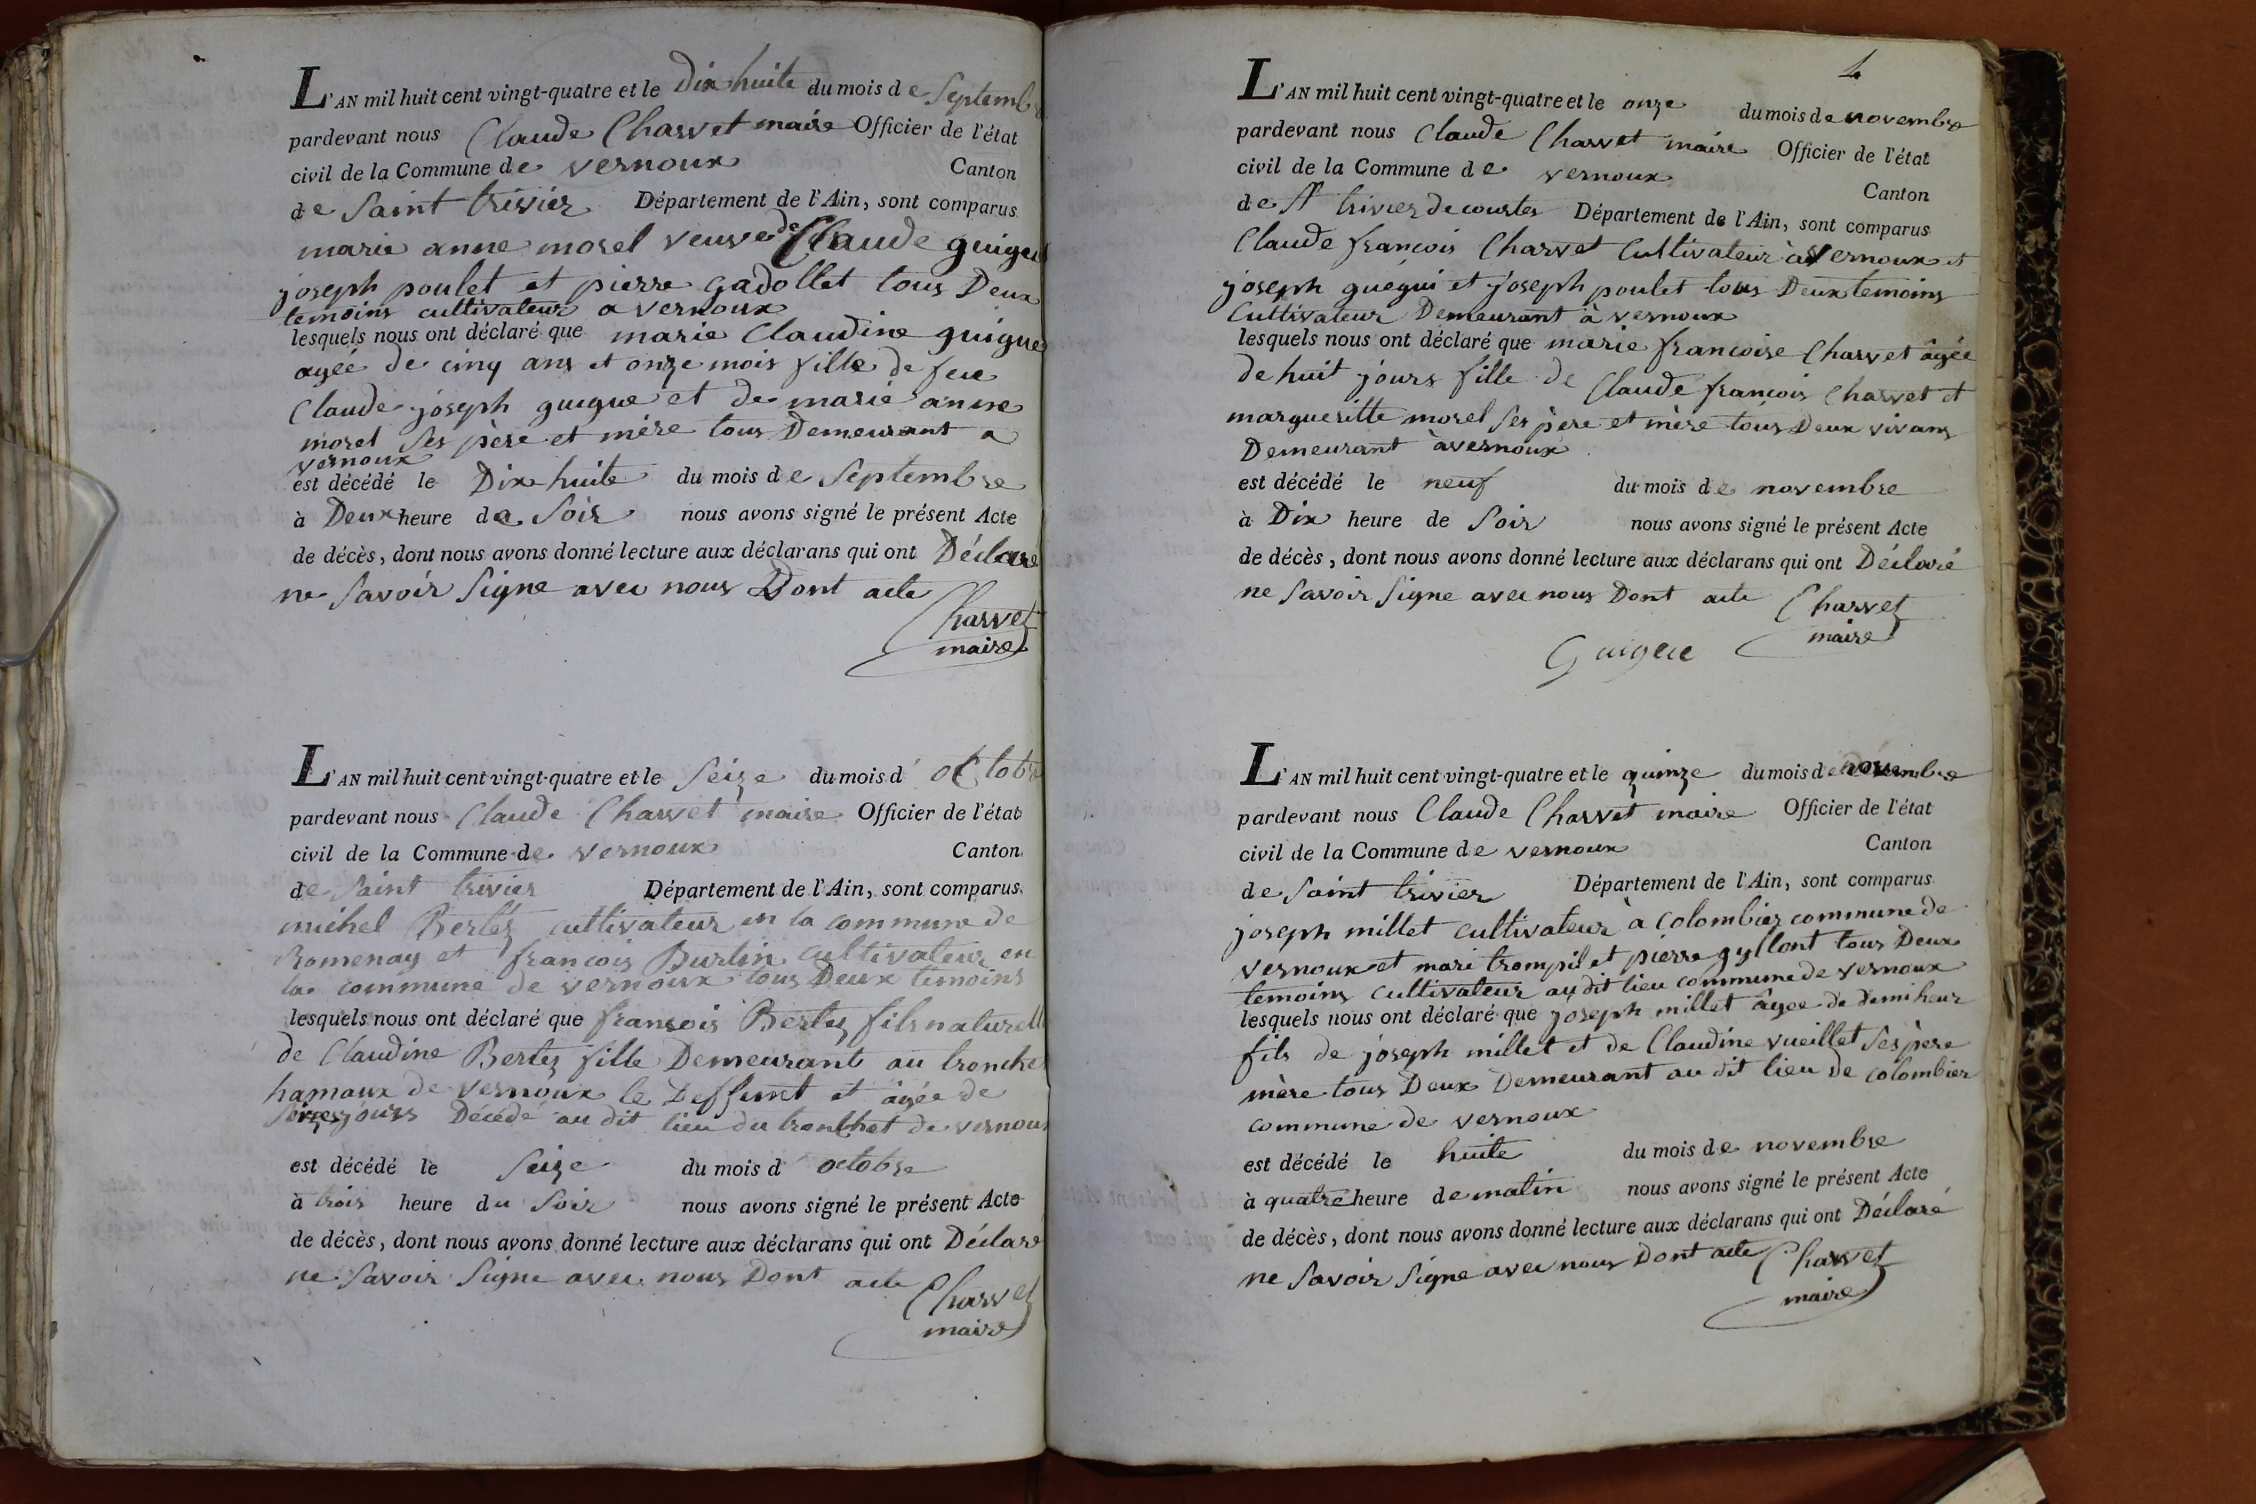 L'AN mil huit cent vingt-quatre et le Dix huite du mois de Septemb
pardevant nous Claude Charvet maire Officier de l'état
civil de la Commune de vernoux Canton
de Saint trivier Département de l'Ain, sont comparus
marie anne morel veuve de Claude guigue
joseph poulet et pierre gadollet tous Deux
temoins cultivateur a vernoux
lesquels nous ont déclaré que marie Claudine guigue
agée de cinq ans et onze mois fille de feue
Claude joseph guigue et de marie anne
morel ses père et mère tous Demeurant a
vernoux
est décédé le Dix huite du mois de Septembre
à Deux heure de Soir nous avons signé le présent Acte
de décès, dont nous avons donné lecture aux déclarans qui ont Déclaré
ne Savoir Signe avec nous Dont acte
Charvet
maire
L'AN mil huit cent vingt-quatre et le Seize du mois d' octobre
pardevant nous Claude Charvet maire Officier de l'état
civil de la Commune de vernoux Canton
de Saint trivier Département de l'Ain, sont comparus
michel Bertez cultivateur en la commune de
Romenay et francois Burtin cultivateur en
la commune de vernoux tous Deux temoins
lesquels nous ont déclaré que fransois Bertez fils naturelle
de Claudine Bertez fille Demeurant au tronchet
hamaux de vernoux le Deffunt et âgée de
Seize jours Décédé au dit lieu du tronchet de vernoux
est décédé le Seize du mois d' octobre
à trois heure du Soir nous avons signé le présent Acte
de décès, dont nous avons donné lecture aux déclarans qui ont Déclaré
ne Savoir Signe avec nous Dont acte
Charvet
maire
4
L'AN mil huit cent vingt-quatre et le onze du mois de novembre
pardevant nous Claude Charvet maire Officier de l'état
civil de la Commune de vernoux Canton
de St trivier de courtes Département de l'Ain, sont comparus
Claude francois Charvet Cultivateur à vernoux et
joseph guégui et joseph poulet tous Deux temoins
Cultivateur Demeurant à vernoux
lesquels nous ont déclaré que marie francoise Charvet âgée
de huit jours fille de Claude francois Charvet et
margueritte morel Ses père et mère tous Deux vivans
Demeurant à vernoux
est décédé le neuf du mois de novembre
à Dix heure de Soir nous avons signé le présent Acte
de décès, dont nous avons donné lecture aux déclarans qui ont Déclaré
ne Savoir Signe avec nous Dont acte Charvet
maire
Guigue
L'AN mil huit cent vingt-quatre et le quinze du mois de novembre
pardevant nous Claude Charvet maire Officier de l'état
civil de la Commune de vernoux Canton
de Saint trivier Département de l'Ain, sont comparus
joseph millet cultivateur à Colombier commune de
vernoux et mari trompil et pierre gyllont tous Deux
temoins cultivateur au dit lieu commune de vernoux
lesquels nous ont déclaré que joseph millet âgee de demi heur
fils de joseph millet et de Claudine vueillet Ses père
mère tous Deux Demeurant au dit lieu de colombier
commune de vernoux
est décédé le huite du mois de novembre
à quatre heure de matin nous avons signé le présent Acte
de décès, dont nous avons donné lecture aux déclarans qui ont Déclaré
ne Savoir Signe avec nous Dont acte Charvet
maire